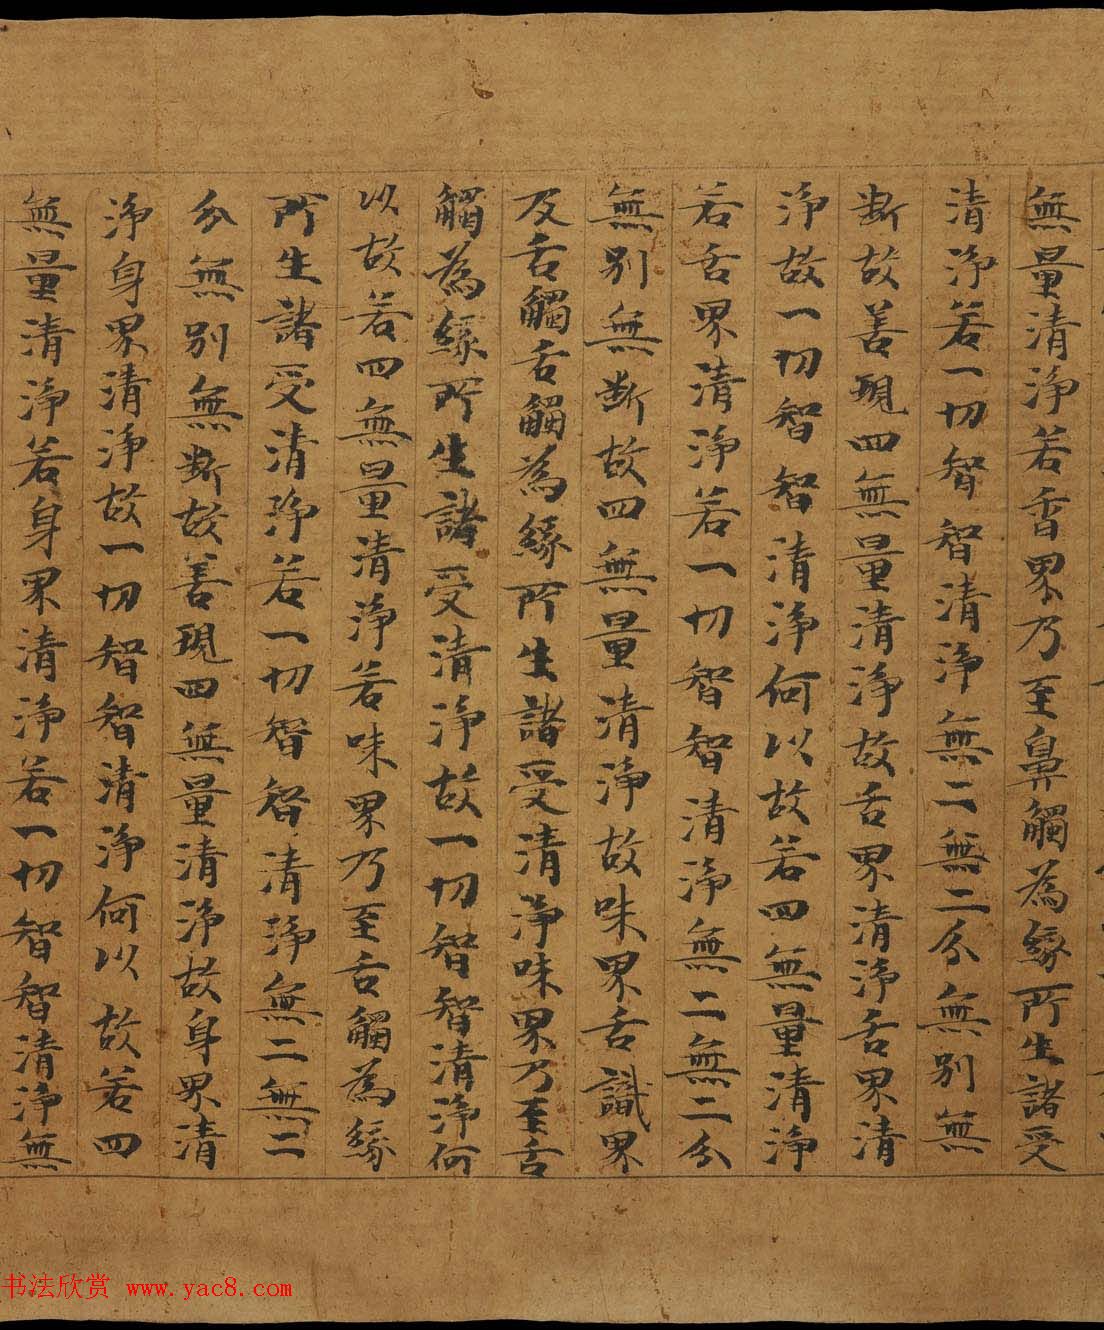 無量清淨若香界乃至鼻觸為緣所生諸受
清淨若一切智智清淨無二無二分無別無
斷故善現四無量清淨故舌界清淨舌界清
淨故一切智智清淨何以故若四無量清淨
若舌界清淨若一切智智清淨無二無二分
無別無斷故四無量清淨故味界舌識界
及舌觸舌觸為緣所生諸受清淨味界乃至舌
觸為緣所生諸受清淨故一切智智清淨何
以故若四無量清淨若味界乃至舌觸為緣
所生諸受清淨若一切智智清淨無二無二
分無別無斷故善現四無量清淨故身界清
淨身界清淨故一切智智清淨何以故若四
無量清淨若身界清淨若一切智智清淨無
书法欣赏 www.yac8.com